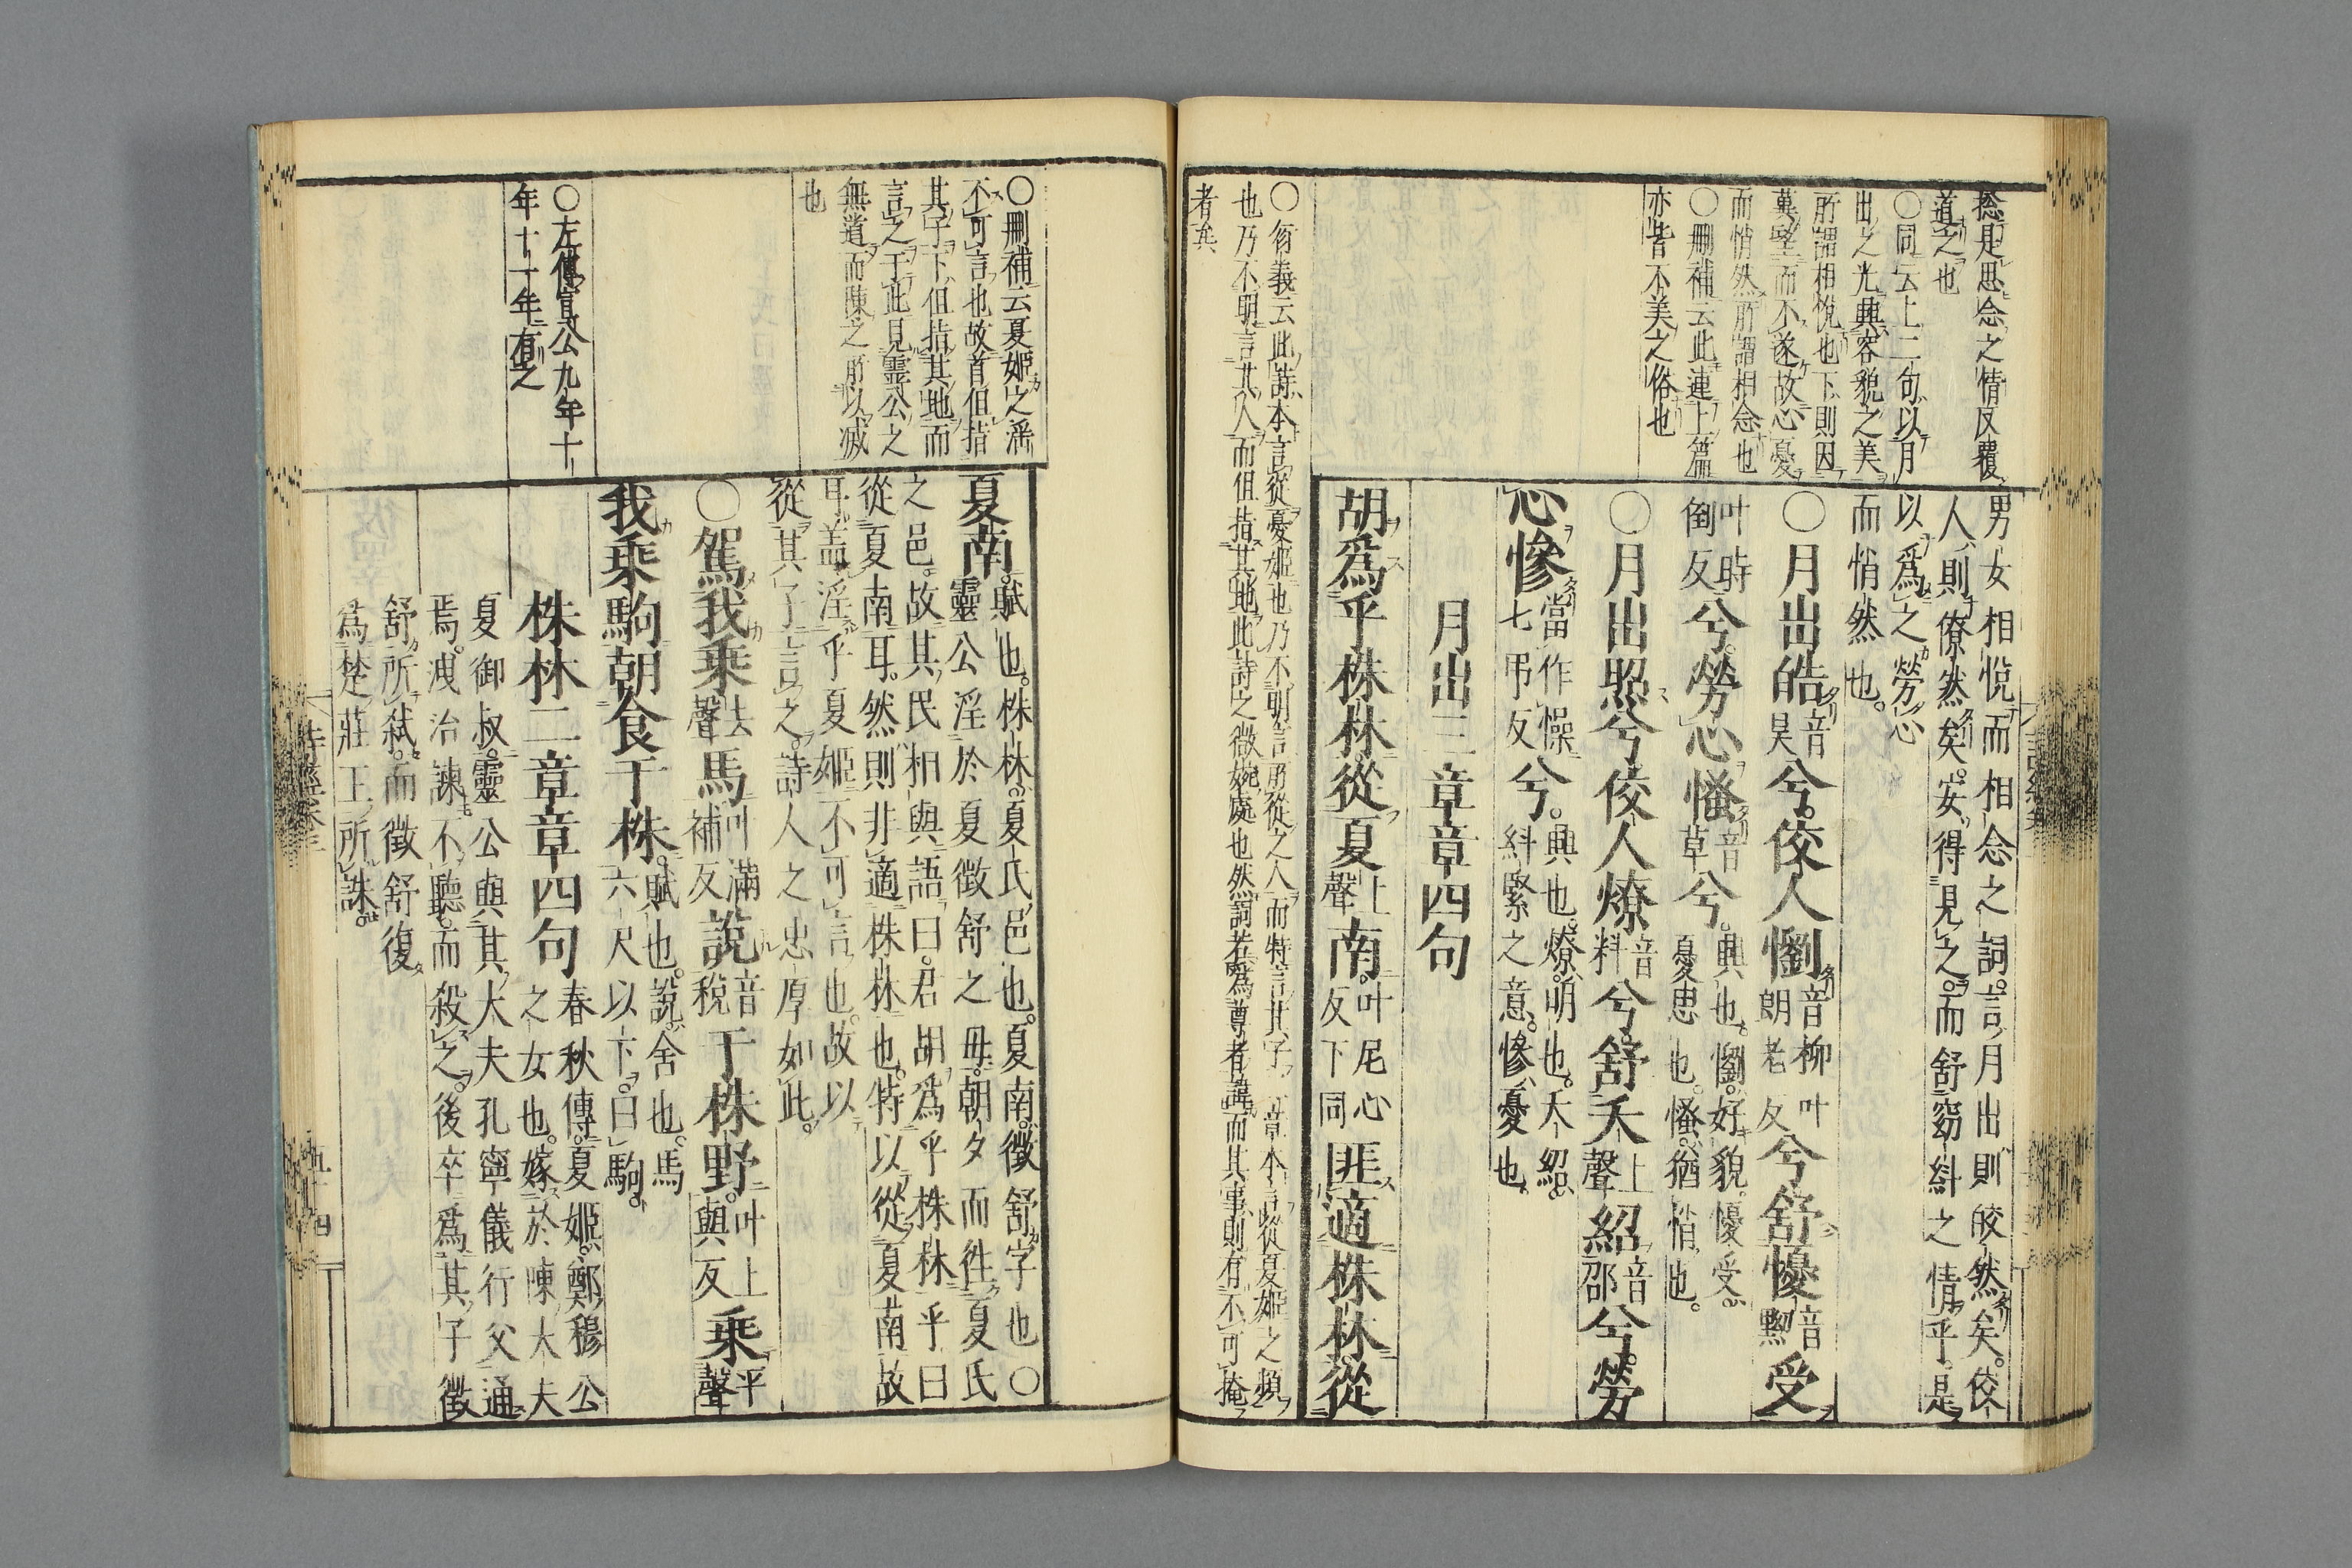 捴是思念之情反覆
道之也
○同云上二句以月
出之光興容貌之美
所謂相悅也下則因
而悄然所謂相念也
○刪補云此連上篇
亦皆不美之俗也
男女相悅而相念之詞。言月出則皎然矣。佼
人則僚然矣。安得見之。而舒窈糾之情乎。是
以爲之勞心
而悄然也。
○月出皓音昊兮。佼人懰音柳叶朗老反兮舒懮音黝受
叶時倒反兮。勞心慅音草兮。興也。懰。好貌。懮受。憂思也。慅。猶悄也。
○月出照兮佼人燎音料兮舒夭上聲紹音邵兮。勞
心慘當作懆七弔反兮。興也。燎。明也。夭紹。糾緊之意。慘。憂也。
月出三章章四句
胡爲乎株林從夏上聲南。叶尼心反下同匪適株林。從
也乃不明言其人而但指其地此詩之微婉處也然詞若爲尊者諱而其事則有不可掩
者矣
○刪補云夏姬之淫
不可言也故首但指
其子下但指其地而
言之于此見靈公之
無道而陳之所以滅
也
○左傳宣公九年十
年十一年有之
夏南。賦也。株林。夏氏邑也。夏南。徵舒字也○
靈公淫於夏徵舒之母。朝夕而往夏氏
之邑。故其民相與語曰。君胡爲乎株林乎曰
從夏南耳。然則非適株林也。特以從夏南故
耳。盖淫乎夏姬不可言也。故以
從其子言之。詩人之忠厚如此。
○駕我乘去聲馬叶滿補反說音稅于株野。叶上與反乘平聲
我乘駒朝食于株。賦也。說。舍也。馬六尺以下。曰駒。
株林二章章四句春秋傳。夏姬。鄭穆公之女也。嫁於陳大夫
夏御叔。靈公與其大夫孔寧儀行父通
焉。洩冶諫不聽。而殺之。後卒爲其子徵
舒所弒。而徵舒復
爲楚莊王所誅。